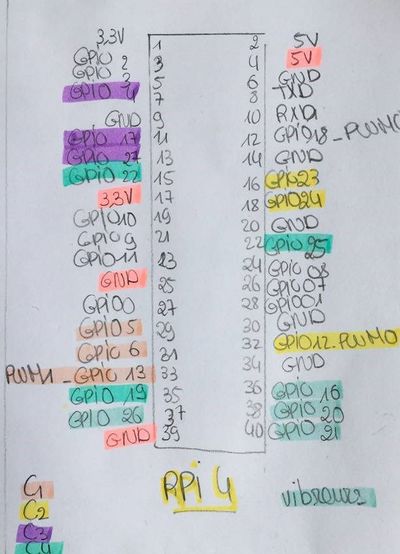 3,3V 1 2 5V
GPIO 2 3 4 5V
GPIO 3 5 6 GND
GPIO 4 7 8 TXD
GND 9 10 RXD
GPIO 17 11 12 GPIO18_PWM0
GPIO 27 13 14 GND
GPIO 22 15 16 GPIO23
3.3V 17 18 GPIO24
GPIO10 19 20 GND
GPIO 9 21 22 GPIO 25
GPIO11 23 24 GPIO 08
GND 25 26 GPIO 07
GPIO0 27 28 GPIO01
GPIO 5 29 30 GND
GPIO 6 31 32 GPIO12.PWM0
PWM1_GPIO 13 33 34 GND
GPIO 19 35 36 GPIO 16
GPIO 26 37 38 GPIO 20
GND 39 40 GPIO 21
C1
C2
C3
C4
RPi 4
vibreurs